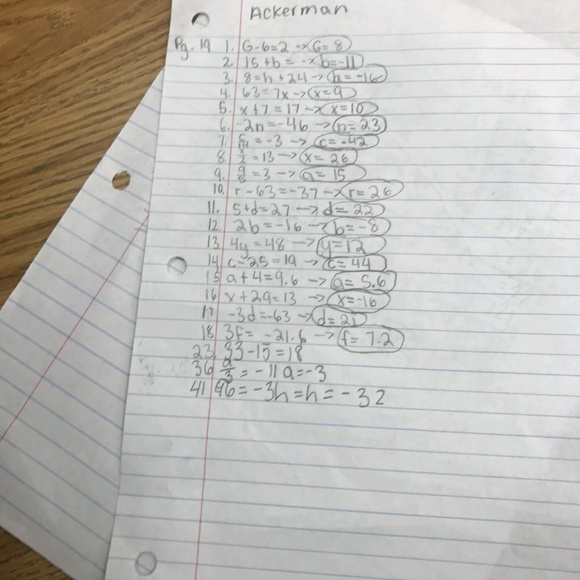 Ackerman
Pg. 19 1. G-6=2 → G=8
2. 15+b= → b=-11
3. 8=h+24 → h=-16
4. 63=7x → x=9
5. x+7=17 → x=10
6. -2n=-46 → n=23
7. =-3 → c=-42
8. x/2=13 → x=26
9. =3 → a=15
10. r-63=-37 → r=26
11. 5+d=27 → d=22
12. 2b=-16 → b=-8
13. 4y=48 → y=12
14. c-25=19 → c=44
15. a+4=9.6 → a=5.6
16. x+29=13 → x=-16
17. -3d=-63 → d=21
18. 3f=-21.6 → f=7.2
23. 33-15=18
36. a/3=-11 a=-3
41. 96=-3h=h=-32